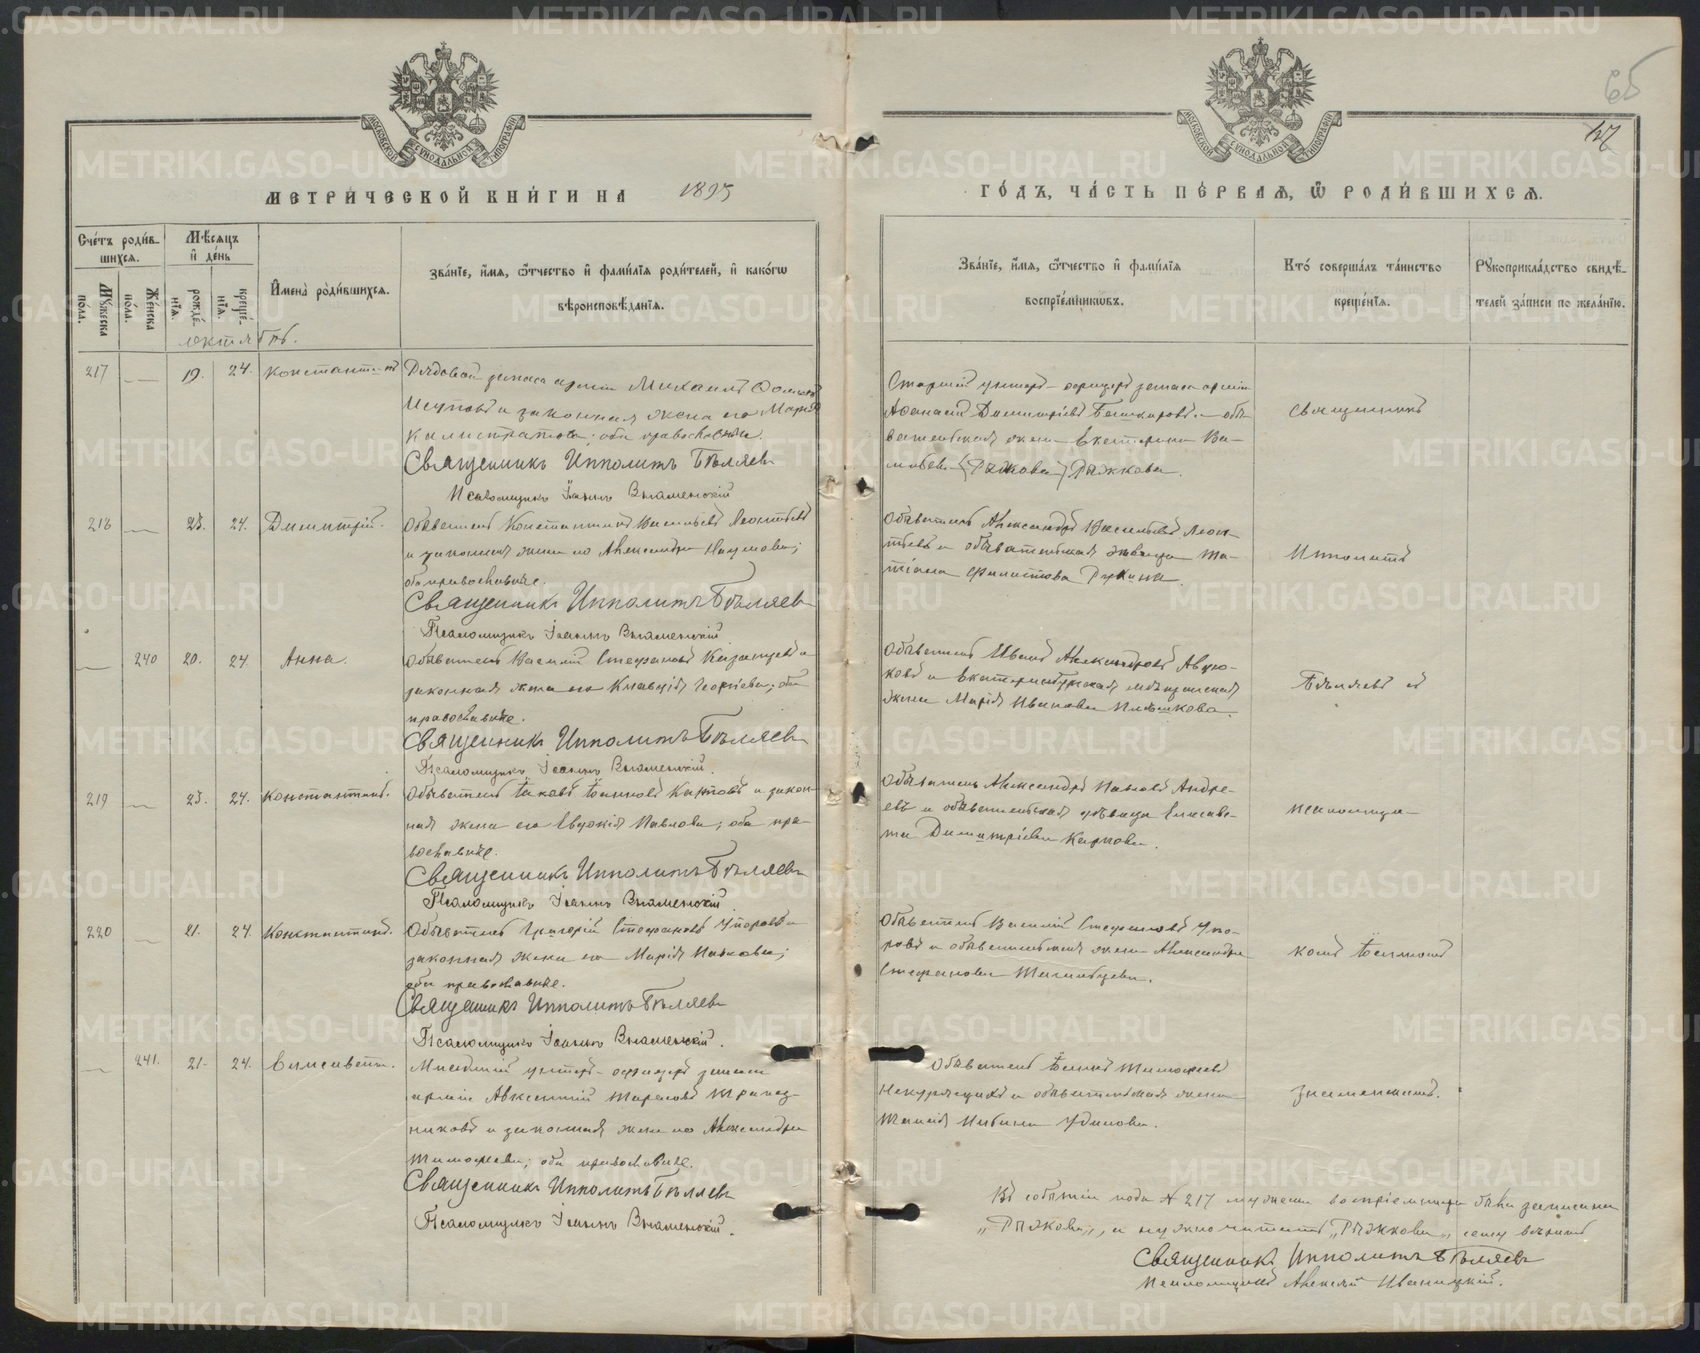 65
147
МОСКОВСКОЙ СѴНОДАЛЬНОЙ ТИПОГРАФІИ
МОСКОВСКОЙ СѴНОДАЛЬНОЙ ТИПОГРАФІИ
МЕТРИ́ЧЕСКОЙ КНИ́ГИ НА 1895
ГО́ДЪ, ЧА́СТЬ ПЕ́РВАѦ, Ѡ҆ РОДИ́ВШИХСѦ.
Сче́тъ роди́в-
шихсѧ.
Мꙋжеска по́ла.
Же́нска по́ла.
Мѣ́сѧцъ и҆ де́нь
рожде́нїѧ.
креще́нїѧ.
И҆мена̀ роди́вшихсѧ.
Зва́нїе, и҆́мѧ, ѻ҆́тчество и҆ фами́лїѧ роди́телей, и҆ како́гѡ
вѣроисповѣ́данїѧ.
Зва́нїе, и҆́мѧ, ѻ҆́тчество и҆ фами́лїѧ
воспрїе́мникѡвъ.
Кто́ соверша́лъ та́инство
креще́нїѧ.
Рꙋкоприкла́дство свидѣ́-
телей за́писи по жела́нїю.
октябрь.
217 — 19. 24. Константинъ
Рядовой запаса арміи Михаилъ
и законная жена его Марія
Калистратова; оба православные.
Священникъ Ипполитъ Бѣляевъ
Псаломщикъ Іоаннъ Знаменскій
Старшій унтеръ-офицеръ запаса арміи
Аѳанасій Димитріевъ Башкировъ и обы-
вательская жена Екатерина Ва-
сильева (Рыжкова) Рыжкова.
священникъ
218 — 23. 24. Димитрій.
Обыватель Константинъ Васильевъ Леонтьевъ
и законная жена его Александра Наумова;
оба православные.
Священникъ Ипполитъ Бѣляевъ
Псаломщикъ Іоаннъ Знаменскій
Обыватель Александръ Васильевъ Леон-
тьевъ и обывательская дѣвица Та-
тіана Филиппова Рукина.
Ипполитъ
— 240 20. 24 Анна.
Обыватель Василій Стефановъ Казанцевъ и
законная жена его Клавдія Георгіева; оба
православные.
Священникъ Ипполитъ Бѣляевъ
Псаломщикъ Іоаннъ Знаменскій.
Обыватель Иванъ Александровъ Авдю-
ковъ и Екатеринбургская мѣщанская
жена Марія Иванова
Бѣляевъ съ
219 — 23. 24. Константинъ.
Обыватель Іаковъ Іоанновъ Карповъ и закон-
ная жена его Евдокія Павлова; оба пра-
вославные.
Священникъ Ипполитъ Бѣляевъ
Псаломщикъ Іоаннъ Знаменскій
Обыватель Александръ Павловъ Андре-
евъ и обывательская дѣвица Елисаве-
та Димитріева Карпова.
псаломщи-
220 — 21. 24 Константинъ.
Обыватель Григорій Стефановъ Упоровъ и
законная жена его Марія Павлова;
оба православные.
Священникъ Ипполитъ Бѣляевъ
Псаломщикъ Іоаннъ Знаменскій.
Обыватель Василій Стефановъ Упо-
ровъ и обывательская жена Александра
Стефанова
комъ Іоанномъ
— 241. 21. 24. Елисавета.
Младшій унтеръ-офицеръ запаса
арміи Авксентій Тарасовъ Трапез-
никовъ и законная жена его Александра
Тимоѳеева; оба православные.
Священникъ Ипполитъ Бѣляевъ
Псаломщикъ Іоаннъ Знаменскій.
Обыватель Іоаннъ Тимоѳеевъ
и обывательская жена
Удилова.
Знаменскимъ.
Въ событіи подъ № 217 воспріемница была записана
„Рыжкова", а нужно читать „Рыжкова"
Священникъ Ипполитъ Бѣляевъ
Псаломщикъ Алексій Иваницкій.
METRIKI.GASO-URAL.RU